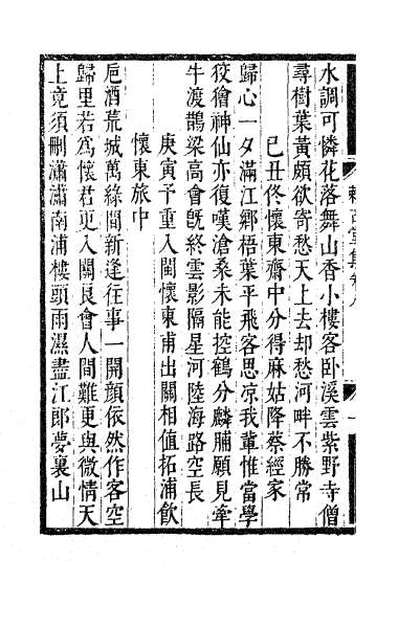 水調可憐花落舞山香小樓客卧溪雲紫野寺僧
尋樹葉黃頗欲寄愁天上去却愁河畔不勝常
己丑佟懷東齋中分得麻姑降蔡經家
歸心一夕滿江鄉梧葉平飛客思凉我輩惟當學
狡獪神仙亦復嘆滄桑未能控鶴分麟脯願見牽
牛渡鵲梁高會旣終雲影隔星河陸海路空長
庚寅予重入閩懷東甫出關相值拓浦飲
懷東旅中
巵酒荒城萬綠間新逢往事一開顏依然作客空
歸里若爲懷君更入關良會人間難更與微情天
上竟須刪瀟瀟南浦樓頭雨濕盡江郎夢裏山